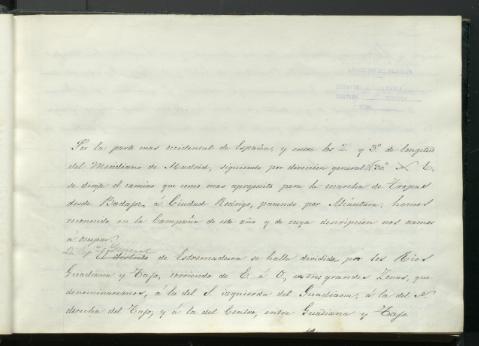 Por la parte mas occidental de España, y entre los 2 y 3º de longitud
del Meridiano de Madrid, siguiendo por direccion general
se dirije el camino que como mas apropósito para la marcha de Tropas
desde Badajoz á Ciudad Rodrigo, pasando por Alcántara, hemos
reconocido en la Campaña de este año y de cuya descripcion nos vamos
á ocupar.
El de Estremadura se halla dividido por los Rios
Guadiana y Tajo, corriendo de E. á O, en tres grandes Zonas, que
denominaremos, á la del S. izquierda del Guadiana, á la del N.
derecha del Tajo, y á la del Centro, entre Guadiana y Tajo